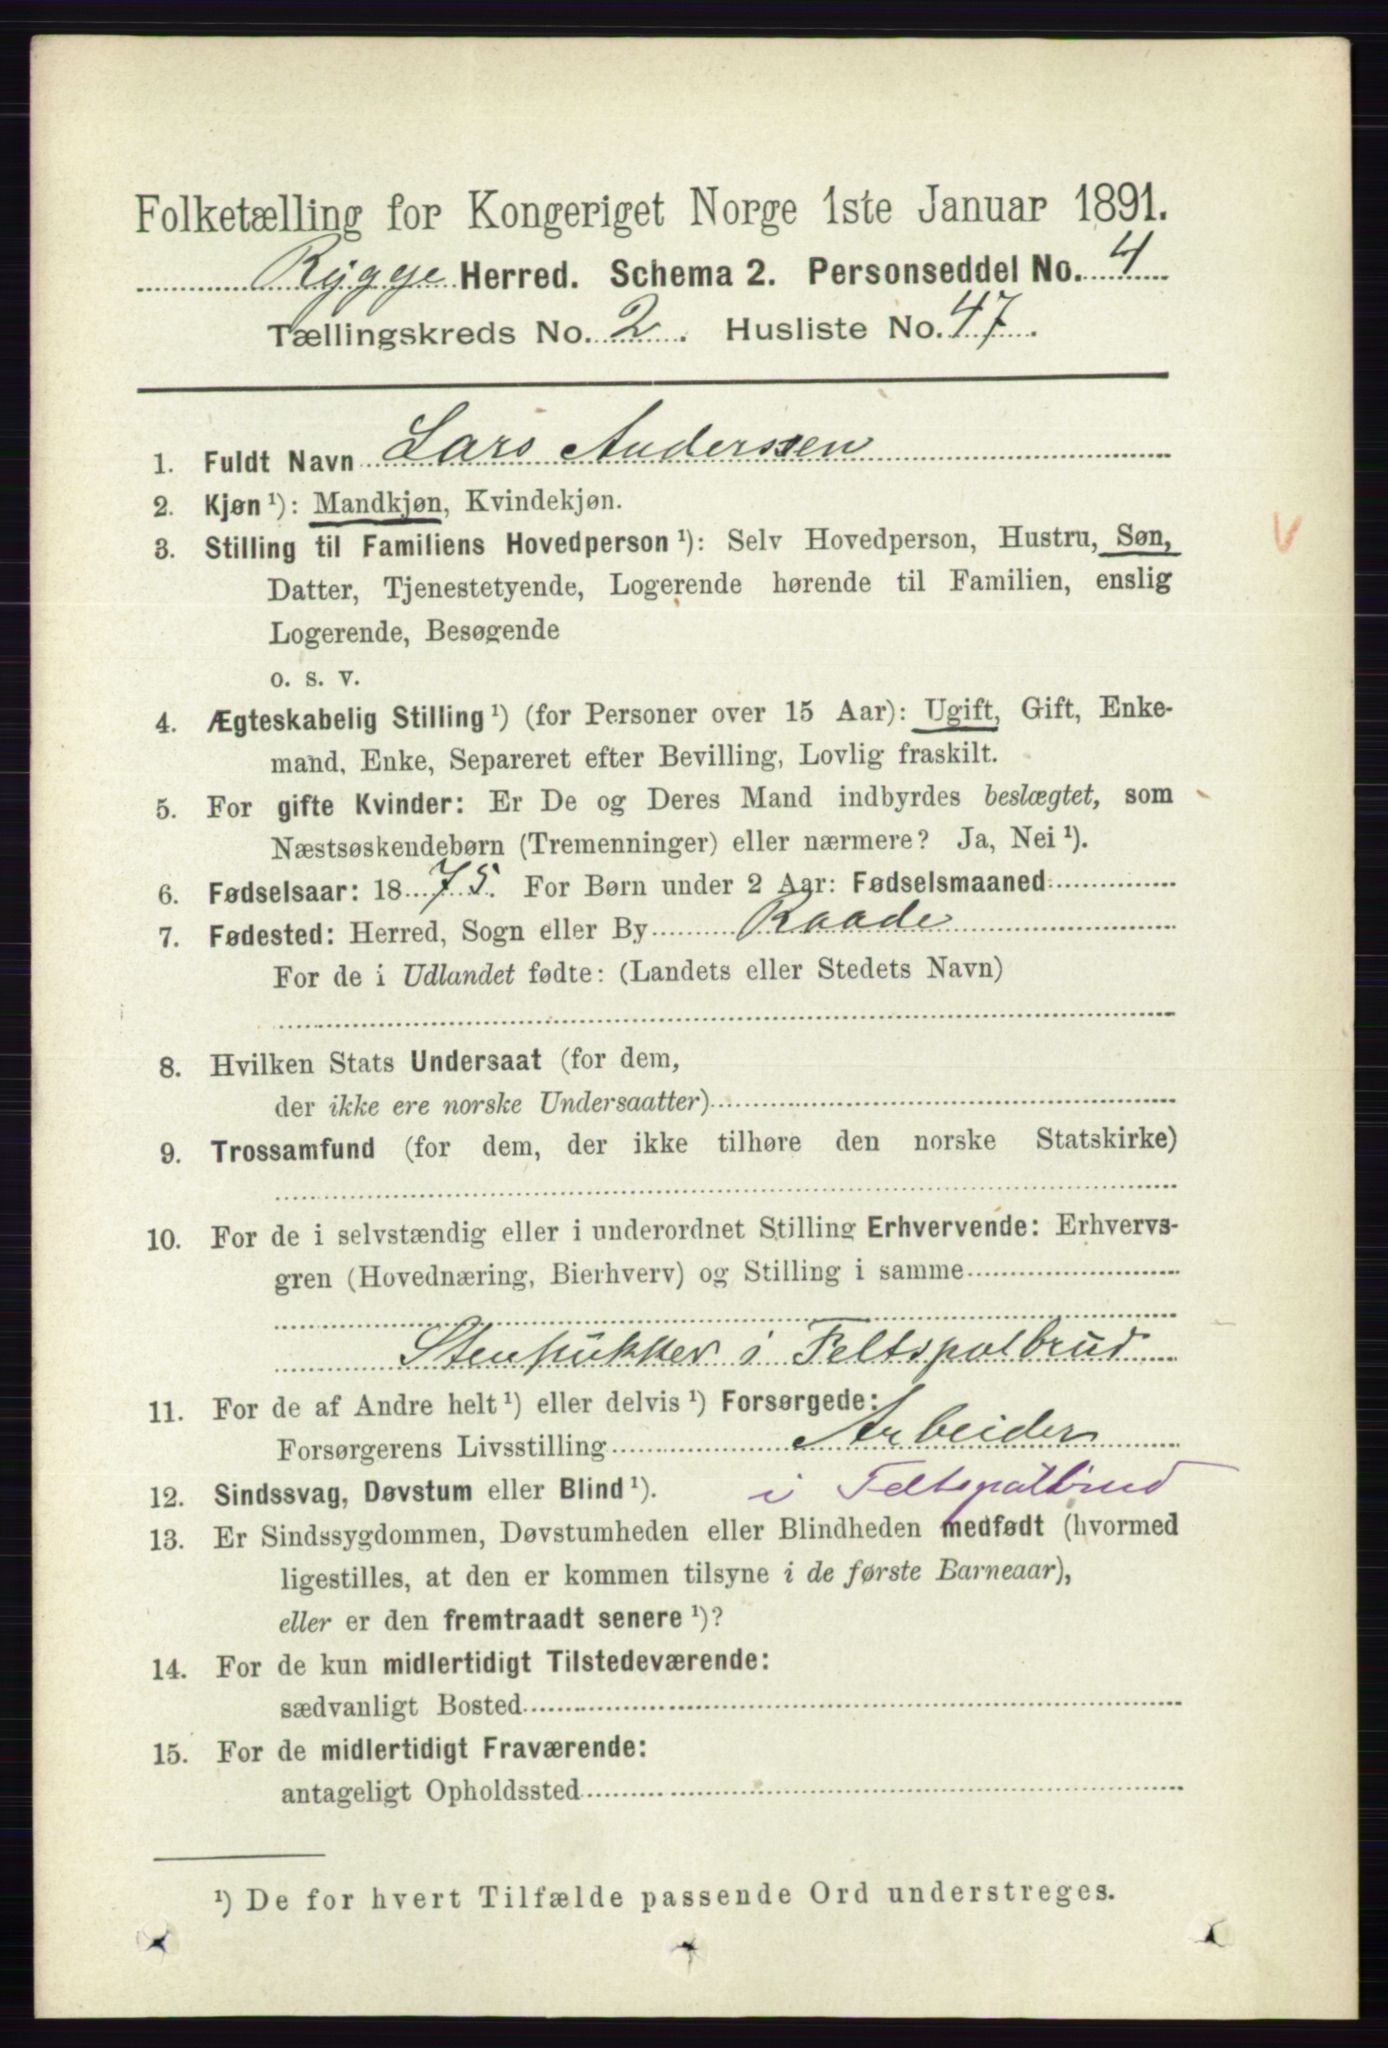 Folketælling for Kongeriget Norge 1ste Januar 1891.
Rygge Herred. Schema 2. Personseddel No. 4
Tællingskreds No. 2. Husliste No. 47.
1. Fuldt Navn Lars Anderssen
2. Kjøn ¹): Mandkjøn, Kvindekjøn.
3. Stilling til Familiens Hovedperson ¹): Selv Hovedperson, Hustru, Søn,
Datter, Tjenestetyende, Logerende hørende til Familien, enslig
Logerende, Besøgende
o. s. v.
4. Ægteskabelig Stilling ¹) (for Personer over 15 Aar): Ugift, Gift, Enke-
mand, Enke, Separeret efter Bevilling, Lovlig fraskilt.
5. For gifte Kvinder: Er De og Deres Mand indbyrdes beslægtet, som
Næstsøskendebørn (Tremenninger) eller nærmere? Ja, Nei ¹).
6. Fødselsaar: 1875. For Børn under 2 Aar: Fødselsmaaned
7. Fødested: Herred, Sogn eller By Raade
For de i Udlandet fødte: (Landets eller Stedets Navn)
8. Hvilken Stats Undersaat (for dem,
der ikke ere norske Undersaatter)
9. Trossamfund (for dem, der ikke tilhøre den norske Statskirke)
10. For de i selvstændig eller i underordnet Stilling Erhvervende: Erhvervs-
gren (Hovednæring, Bierhverv) og Stilling i samme
Stenpukker i Feltspatbrud
11. For de af Andre helt ¹) eller delvis ¹) Forsørgede:
Forsørgerens Livsstilling Arbeider
12. Sindssvag, Døvstum eller Blind ¹). i Feltspatbrud
13. Er Sindssygdommen, Døvstumheden eller Blindheden medfødt (hvormed
ligestilles, at den er kommen tilsyne i de første Barneaar),
eller er den fremtraadt senere ¹)?
14. For de kun midlertidigt Tilstedeværende:
sædvanligt Bosted
15. For de midlertidigt Fraværende:
antageligt Opholdssted
¹) De for hvert Tilfælde passende Ord understreges.